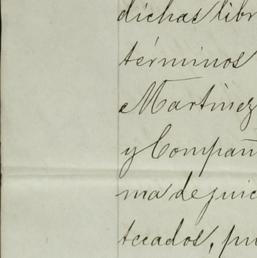 dichas libr
términos
Martinez
y Compañ
ma de juic
tecados, pu